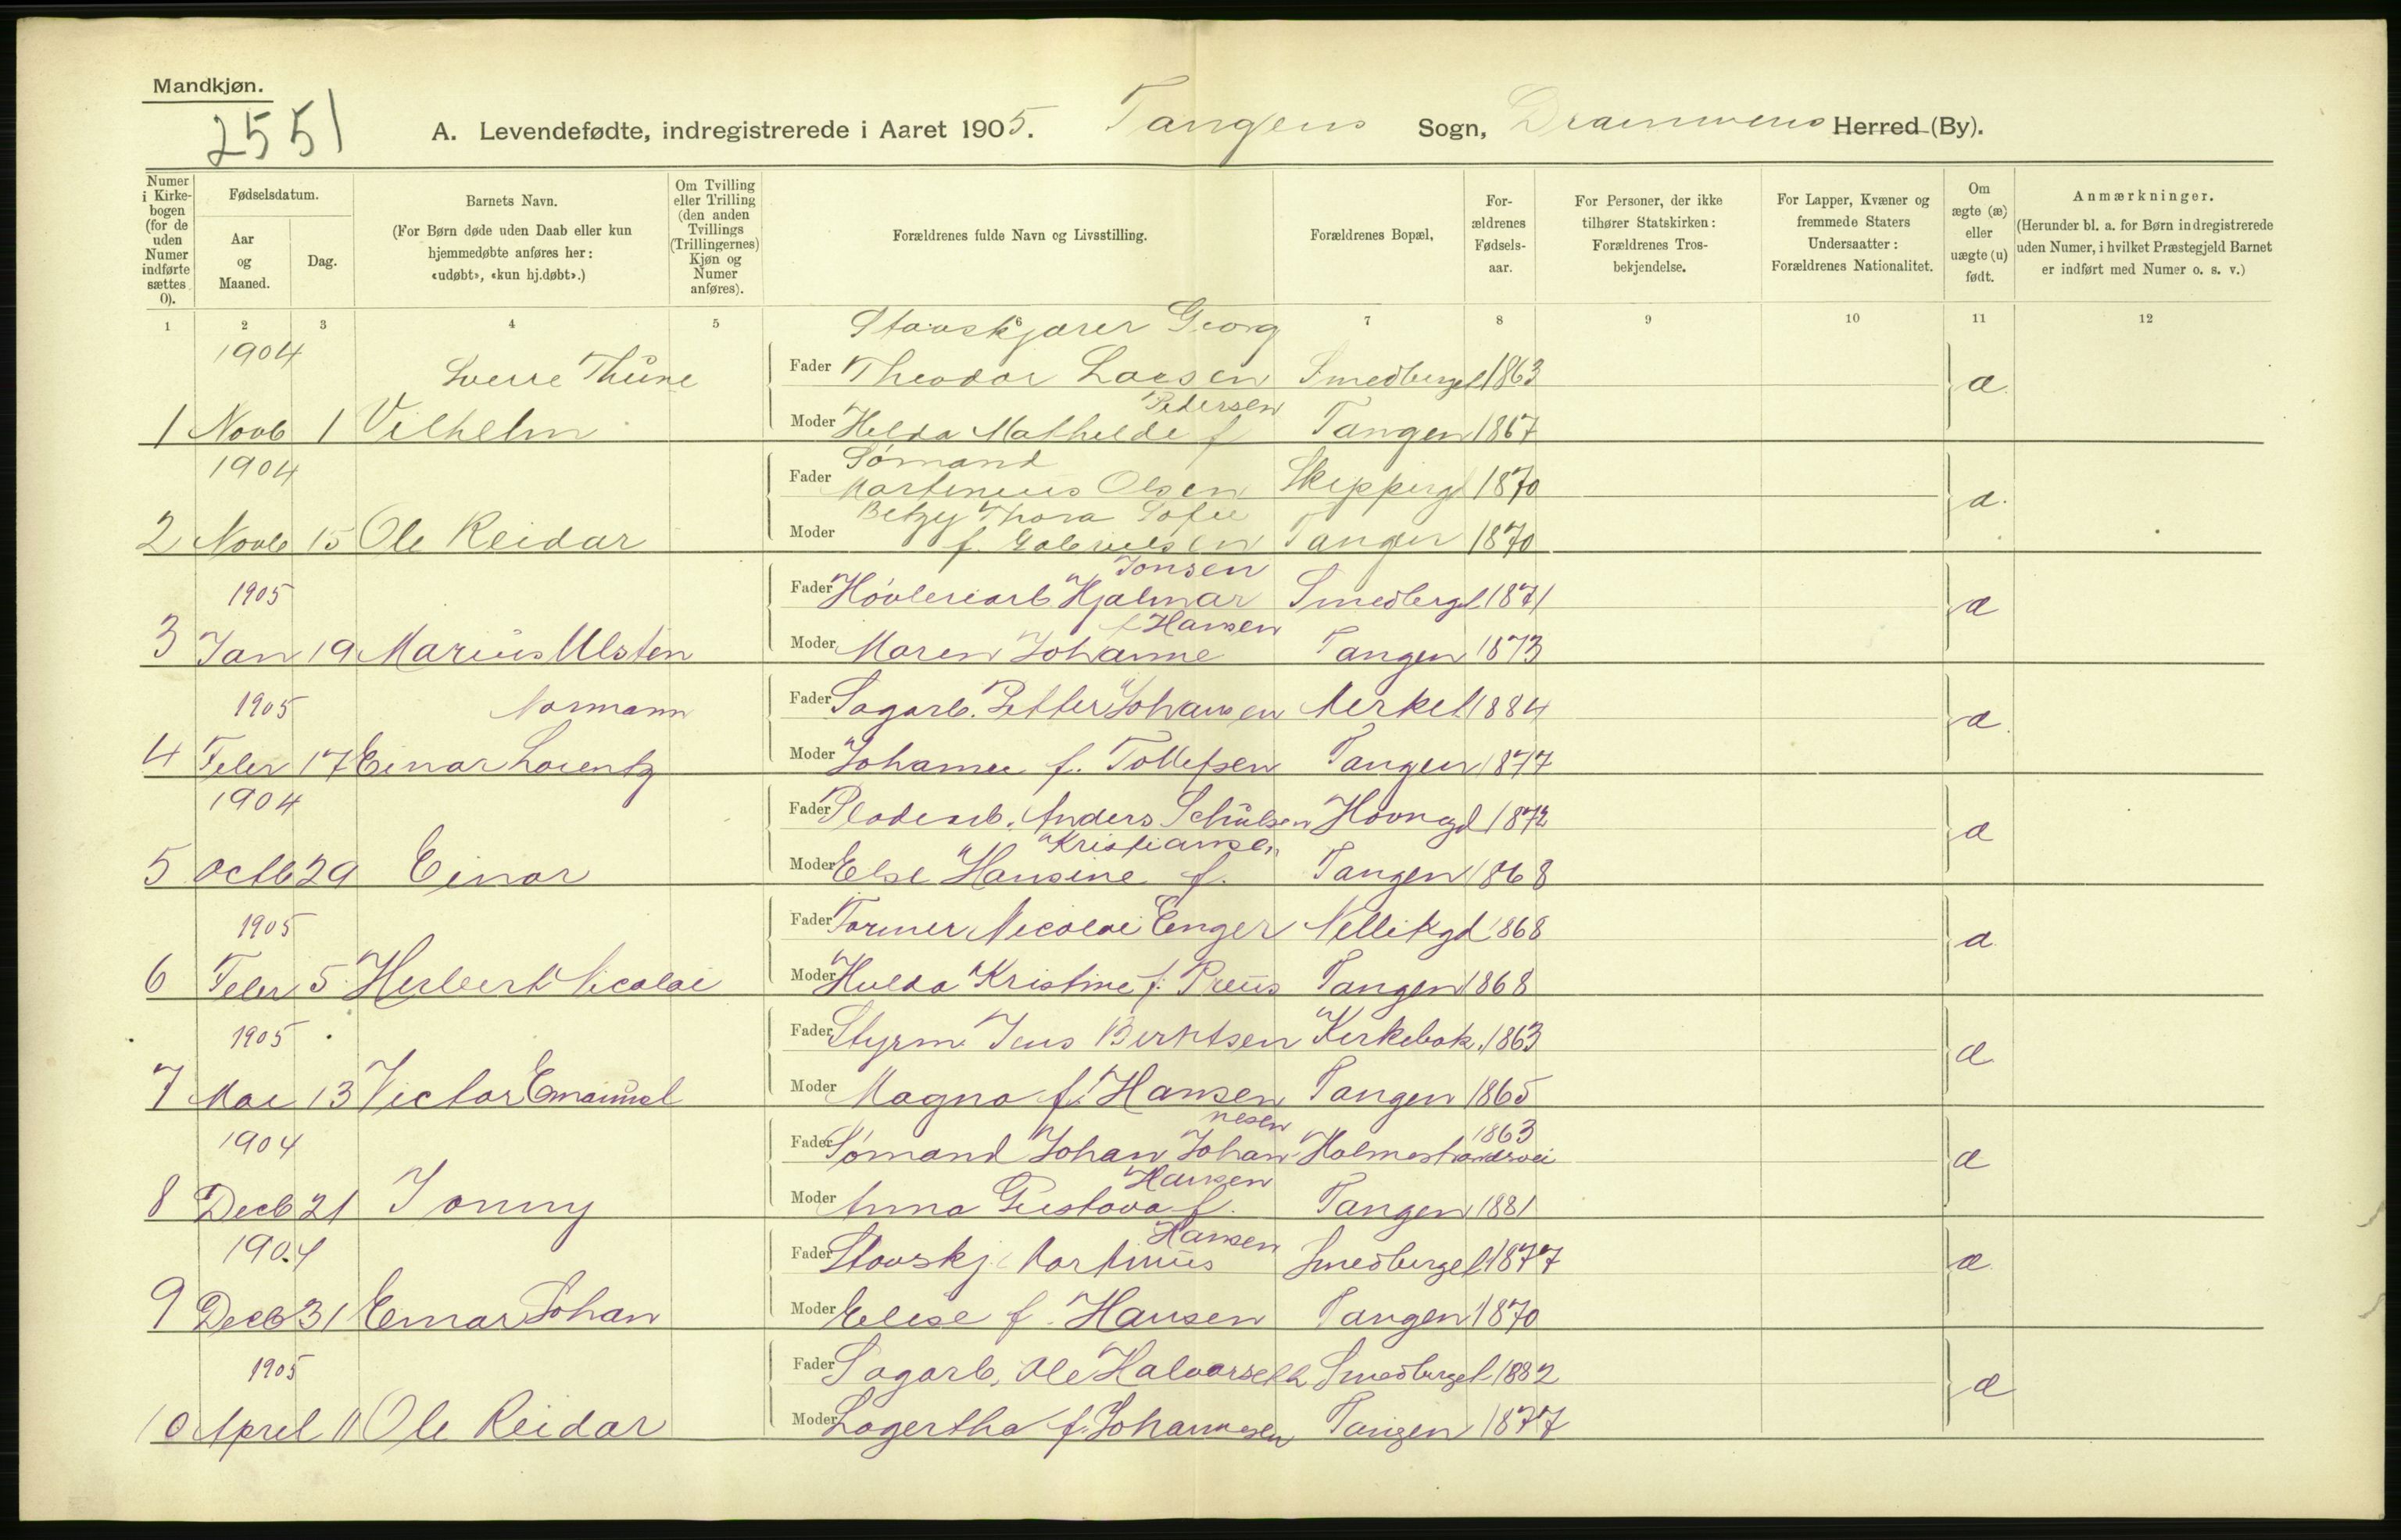 Mandkjøn.
2551
A. Levendefødte, indregistrerede i Aaret 1905. Tangens Sogn, Drammens Herred (By).
Numer i Kirkebogen (for de uden Numer indførte sættes 0).
Fødselsdatum.
Aar og Maaned.
Dag.
Barnets Navn.
(For Børn døde uden Daab eller kun hjemmedøbte anføres her: «udøbt», «kun hj.døbt».)
Om Tvilling eller Trilling (den anden Tvillings (Trillingernes) Kjøn og Numer anføres).
Forældrenes fulde Navn og Livsstilling.
Forældrenes Bopæl,
Forældrenes Fødselsaar.
For Personer, der ikke tilhører Statskirken: Forældrenes Trosbekjendelse.
For Lapper, Kvæner og fremmede Staters Undersaatter: Forældrenes Nationalitet.
Om ægte (æ) eller uægte (u) født.
Anmærkninger.
(Herunder bl. a. for Børn indregistrerede uden Numer, i hvilket Præstegjeld Barnet er indført med Numer o. s. v.)
1 2 3 4 5 6 7 8 9 10 11 12
Stavskjærer Georg
1904 Sverre Thune Fader Theodor Larsen Smedbergel 1863 æ
Pedersen
1 Novb 1 Vilhelm Moder Helda Mathilde f Tangen 1867
Sömand
1904 Fader Martinius Olsen Skipperg 1870 æ
Betzy Thora Sofie
2 Novb 15 Ole Reidar Moder f. Gabrielsen Tangen 1870
Jonsen
1905 Fader Høvleriarb Hjalmar Smedbergel 1871 æ
f Hansen
3 Jan 19 Marius Ulsten Moder Maren Johanne Tangen 1873
1905 Normann Fader Sagarb. Petter Johansen 1884 æ
4 Febr 17 Einar Lorentz Moder Johanne f. Tollefsen Tangen 1877
1904 Fader Anders Schulsen Havngd 1872 æ
Kristiansen
5 Octb 29 Einar Moder Else Hansine f. Tangen 1868
1905 Fader Former Nicolai Enger Nellikgd 1868 æ
6 Febr 5 Herbert Nicolai Moder Hulda Kristine f. Preus Tangen 1868
1905 Fader Styrm Jens Berntsen Kirkebak. 1863 æ
7 Mai 13 Victor Emanuel Moder Magna f. Hansen Tangen 1865
nesen 1863
1904 Fader Sömand Johan Johan Holmestrandsvei æ
Hansen
8 Decb 21 Jonny Moder Anna Gustava f. Tangen 1881
Hansen
1904 Fader Stavskj. Martinius Smedbergel 1877 æ
9 Decb 31 Einar Johan Moder Elise f. Hansen Tangen 1870
1905 Fader Sagarb. Ole Halvorsen Smedbergel 1882 æ
10 April 11 Ole Reidar Moder Lagertha f. Johannesen Tangen 1877